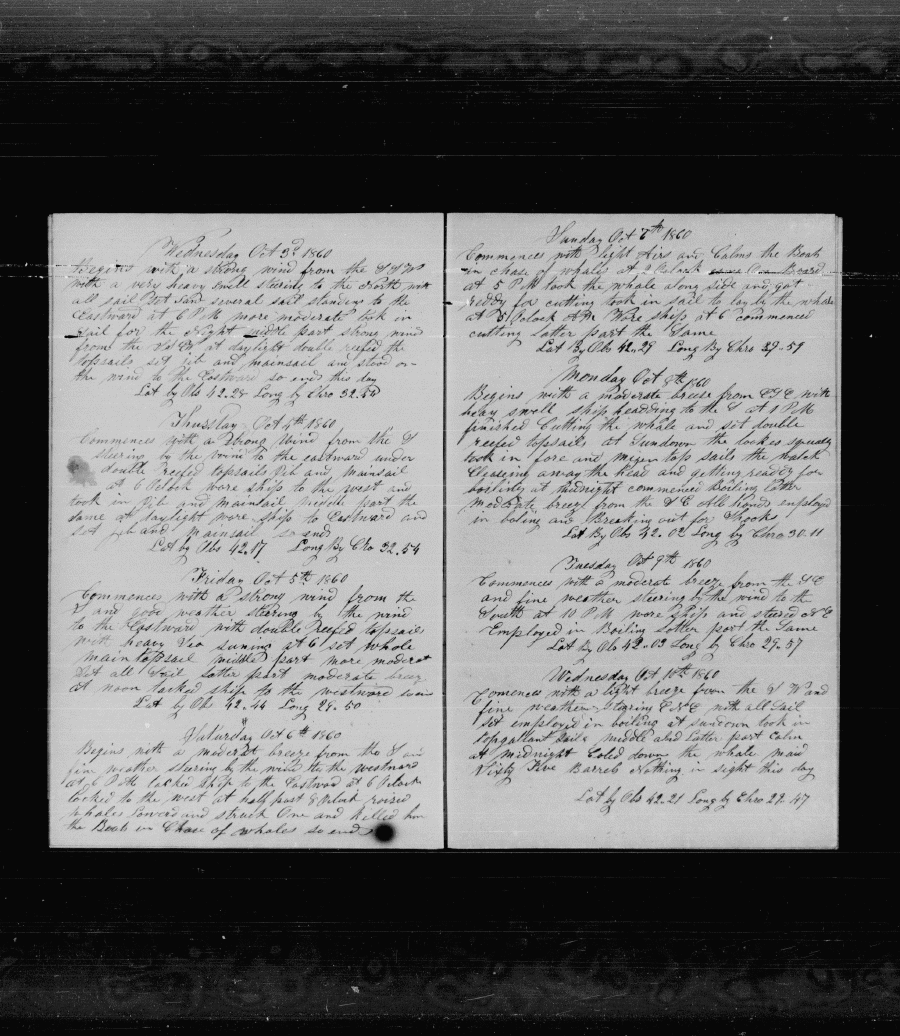 Wednesday Oct 3d 1860
Begins with a strong wind from the S S W
with a very heavy swell steering to the North with
all sail set saw several sail standing to the
Eastward at 6 P M more moderate took in
sail for the Night middle part strong wind
from the at daylight double reefed the
topsails set jib and mainsail and stood on
the wind to the Eastward so ends this day
Lat by Obs 42.28 Long by Chro 32.54
Thursday Oct 4th 1860
Commences with a Strong Wind from the S
steering by the wind to the eastward under
double reefed topsails Jib and mainsail
at 6 Oclock wore ship to the west and
took in Jib and mainsail middle part the
same at daylight wore ship to Eastward and
set jib and mainsail so ends
Lat by Obs 42.17 Long By Cro 32.54
Friday Oct 5th 1860
Commences with a strong wind from the
S and good weather stearing by the wind
to the Eastward with double reefed topsails
with heavy Sea runing at 6 set whole
main topsail middle part more moderat
Set all Sail latter part moderate breez
at noon tacked ship to the westward
Lat by Obs 42.44 Long 29.50
Saturday Oct 6th 1860
Begins with a moderat breeze from the S an
fin weather stearing by the wind to the westward
at 6 P M tacked ship to the Eastward at 6 Oclock
tacked to the west at half past 8 Oclock raised
whales Leward and struck One and killed him
the Boats in Chase of whales so ends
Sunday Oct 7th 1860
Commences with light Airs and Calms the Boats
in chase of whales at 2 Oclock Board
at 5 P M took the whale along side and got
reddy for cutting took in sail to lay by the whale
at 3 Oclock A M Wore ship at 6 commenced
cutting latter part the Same
Lat By Obs 42.29 Long By Chro 29-59
Monday Oct 8th 1860
Begins with a moderate breeze from E S E with
heavy swell ship heading to the S at 1 P M
finished Cutting the whale and set double
reefed topsails at Sundown the lookes squaly
took in fore and mizen top sails the watch
Clearing away the head and getting readdy for
boiling at midnight commenced Boiling latter
moderate breez from the S E All hands employed
in boiling and Breaking out for Shooks
Lat By Obs 42.02 Long by Chro 30-11
Tuesday Oct 9th 1860
Commences with a moderat breeze from the S E
and fine weather steering by the wind to the
South at 10 P M wore Ship and steared N E
Employed in Boiling Latter part the Same
Lat By Obs 42-03 Long by Chro 29-57
Wednesday Oct 10th 1860
Comences with a light breeze from the S W and
fine weather Stearing E N E with all Sail
set employed in boiling at sundown took in
topgallant Sails middle and latter part calm
at midnight Coled down the whale maid
Sixty Five Barrels nothing in sight this day
Lat by Obs 42.21 Long by Chro 29.47